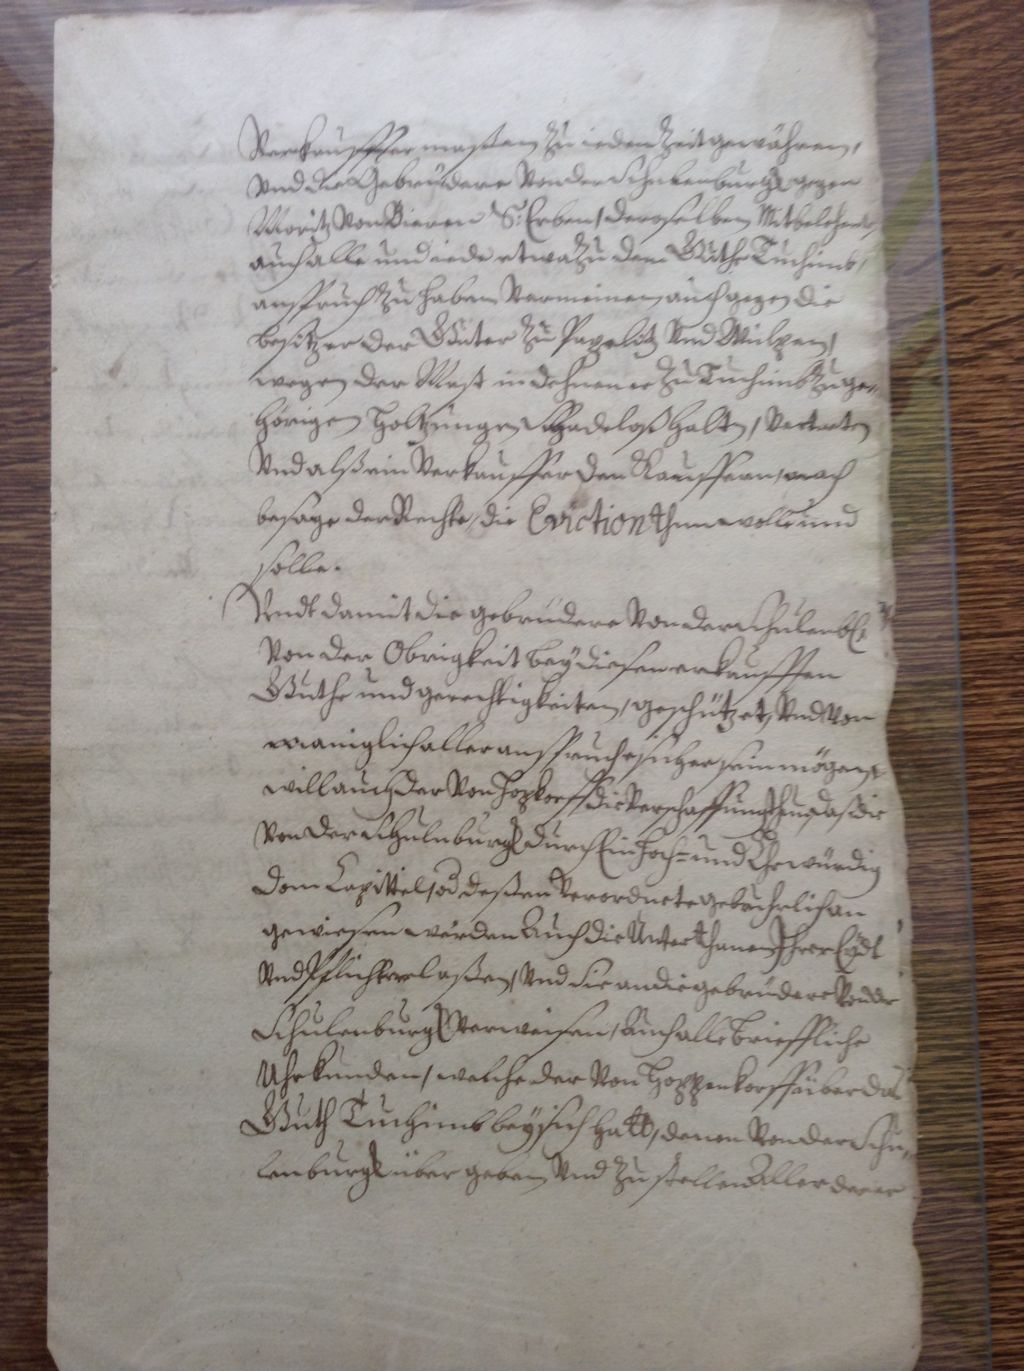 Verkauffer massen zu ieden Zeit gewähren,
Vnd die Gebrüdere Von der Schulenburgk gegen
Moritz Von Bieren S: Erben, derselben Mitbelehnte,
auch alle und iede etwa zu dem Guthe Tuchimb,
anspruch zu haben Vermeinen, auch gegen die
besitzer der Güter zu Papelitz Vnd Wülpen,
wegen der Mast in dehnen zu Tuchimb zu ge-
hörigen Holtzungen Schadeloß halten, Vertreten
Vnd alß ein Verkauffer den Kauffern, nach
besage der Rechte, die Eviction thun wolle und
solle.
Vndt damit die gebrüdere Von der Schulenb:
Von der Obrigkeit bey diesen erkaufften
Guthe und gerechtigkeiten, geschützet, Vnd Von
manniglich aller anspruche sicher sein mögen,
will auch der Von Hopkorff die Verschaffung thun, daß die
Von der Schulnburgk durch Ein Hoch- und Ehrwürdig
Dom Capittel, od deßen Verordnete gebührlich an
gewiesen werden Auch die Unterthanen Ihrer Eydt
Vnd Pflicht erlaßen, Vnd Sie an die gebrüdere Von der
Schulenburgk Verweisen, Auch alle brieffliche
Uhrkunden, welche der Von Hoppenkorff über das
Guth Tuchimb bey sich hatt, denen Von der Schu-
lenburgk über geben Vnd zu stellen Aller derer